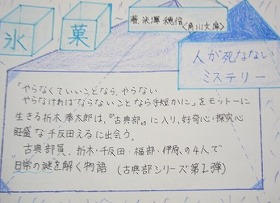 氷菓
著、米澤穂信
〈角川文庫〉
人が死なない
ミステリー
“やらなくていいことなら、やらない
やらなければならないことなら手短かに”をモットーに
生きる折木奉太郎は、『古典部』に入り、好奇心・探究心
旺盛な千反田えるに出会う。
古典部員、折木・千反田・福部・伊原の4人で
日常の謎を解く物語(古典部シリーズ第1弾)